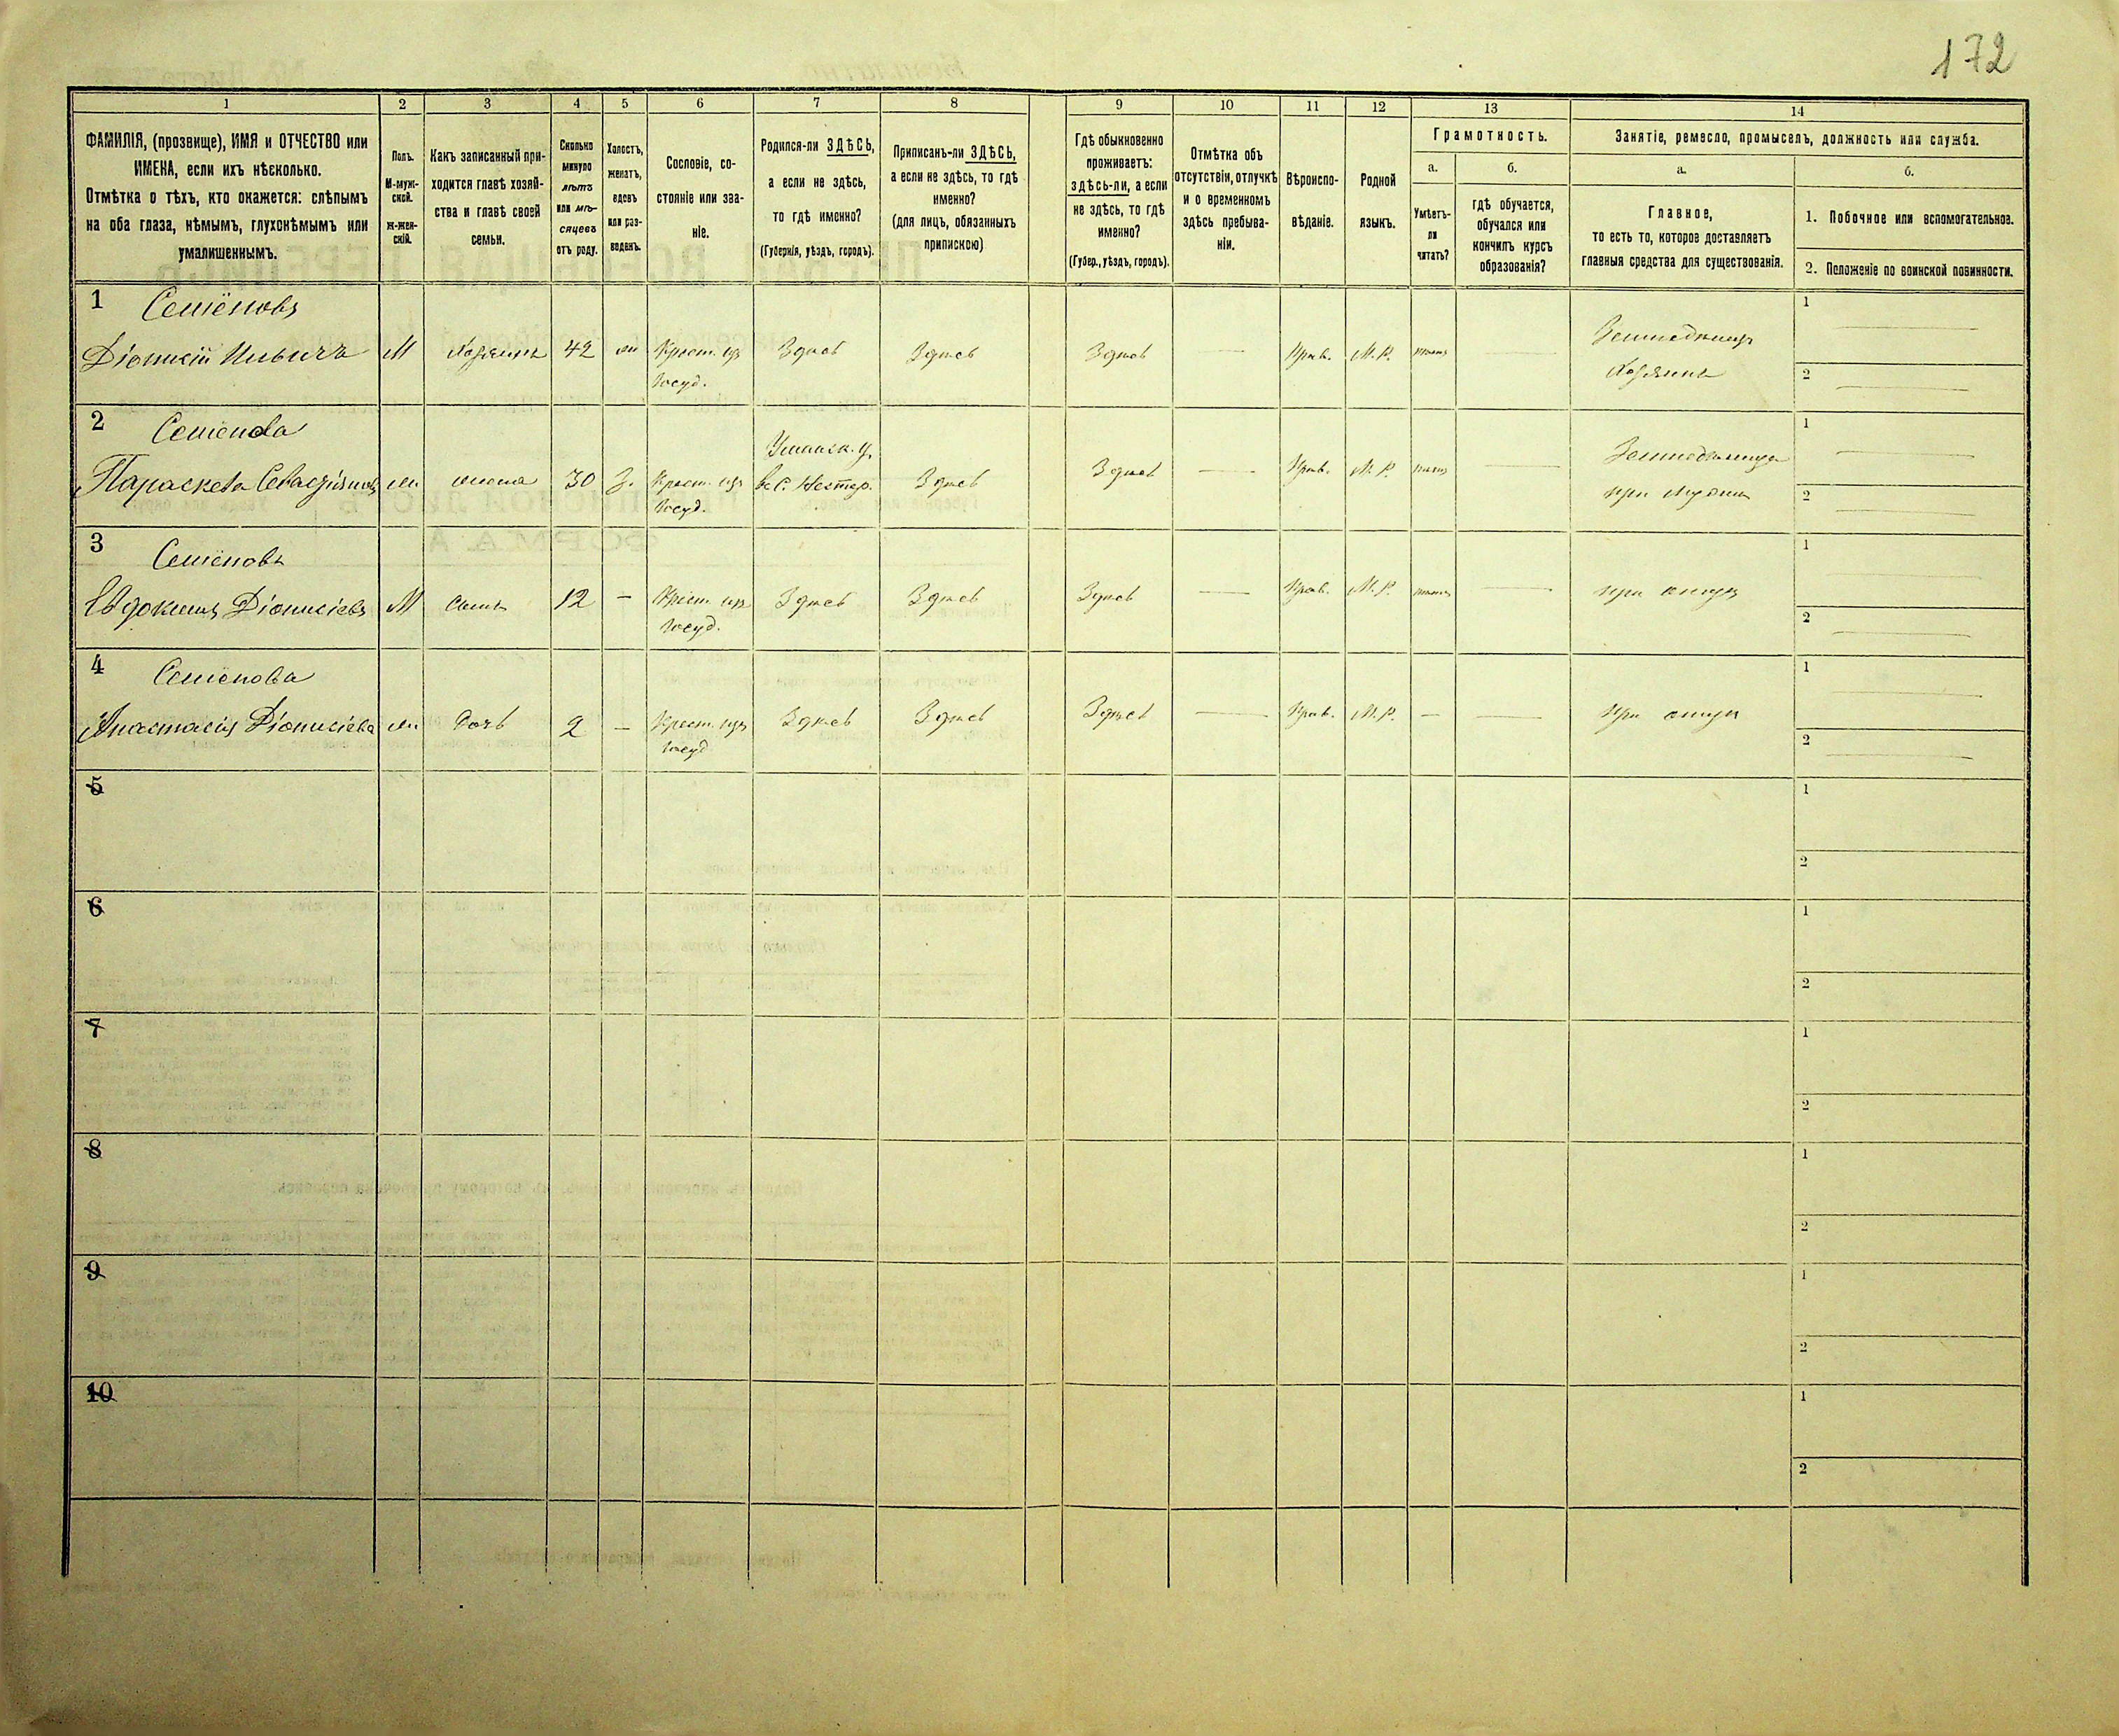 172
1
2
3
4
5
6
7
8
9
10
11
12
13
14
ФАМИЛІЯ, (прозвище), ИМЯ и ОТЧЕСТВО или
ИМЕНА, если ихъ нѣсколько.
Отмѣтка о тѣхъ, кто окажется: слѣпымъ
на оба глаза, нѣмымъ, глухонѣмымъ или
умалишеннымъ.
Полъ.
М-муж-
ской.
ж-жен-
скій.
Какъ записанный при-
ходится главѣ хозяй-
ства и главѣ своей
семьи.
Сколько
минуло
лѣтъ
или мѣ-
сяцевъ
отъ роду.
Холостъ,
женатъ,
вдовъ
или раз-
веденъ.
Сословіе, со-
стояніе или зва-
ніе.
Родился-ли ЗДѢСЬ,
а если не здѣсь,
то гдѣ именно?
(Губернія, уѣздъ, городъ).
Приписанъ-ли ЗДѢСЬ,
а если не здѣсь, то гдѣ
именно?
(для лицъ, обязанныхъ
припискою)
Гдѣ обыкновенно
проживаетъ:
здѣсь-ли, а если
не здѣсь, то гдѣ
именно?
(Губер., уѣздъ, городъ).
Отмѣтка объ
отсутствіи, отлучкѣ
и о временномъ
здѣсь пребыва-
ніи.
Вѣроиспо-
вѣданіе.
Родной
языкъ.
Грамотность.
а.
Умѣетъ-
ли
читать?
б.
гдѣ обучается,
обучался или
кончилъ курсъ
образованія?
Занятіе, ремесло, промыселъ, должность или служба.
а.
Главное,
то есть то, которое доставляетъ
главныя средства для существованія.
б.
1. Побочное или вспомогательное.
2. Положеніе по воинской повинности.
1 Семёновъ
Діонисій Ильичъ М Хозяинъ 42 ж Крест. изъ Здѣсь Здѣсь Здѣсь — Прав. М.Р.
Госуд.
Земледѣлецъ
Хозяинъ
1
2
2 Семёнова
Параскева Севастіянов. ж жена 30 з. Крест. изъ
Госуд.
Уманск. у.
в с. Нестер.
Здѣсь Здѣсь — Прав. М.Р.
Земледѣлица
при мужѣ
1
2
3 Семёновъ
Евдокимъ Діонисіевъ М Сынъ 12 — Крест. изъ Здѣсь Здѣсь Здѣсь — Прав. М.Р. — при отцѣ
Госуд.
1
2
4 Семёнова
Анастасія Діонисіева ж Дочь 2 — Крест. изъ Здѣсь Здѣсь Здѣсь — Прав. М.Р. — — при отцѣ
Госуд
1
2
5
1
2
6
1
2
7
1
2
8
1
2
9
1
2
10
1
2